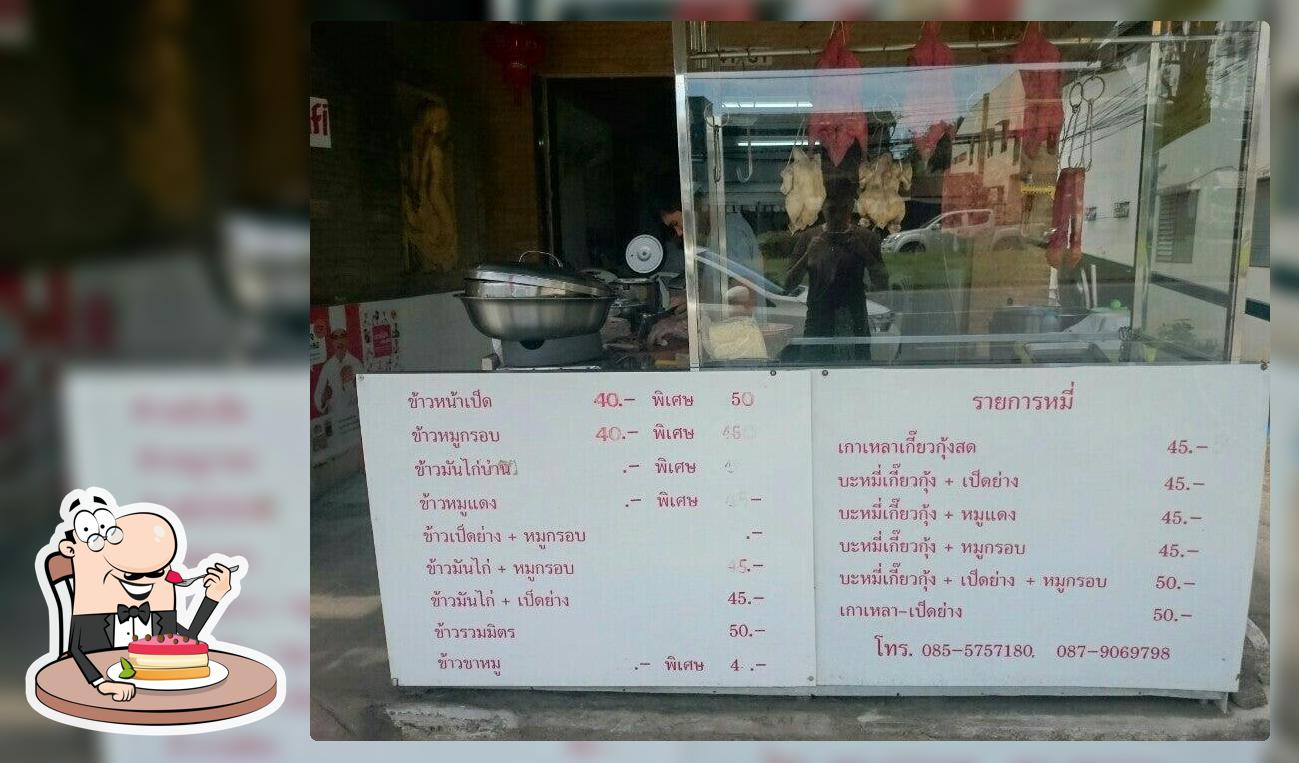 fi
ข้าวหน้าเป็ด 40.- พิเศษ 50
ข้าวหมูกรอบ 40.- พิเศษ
ข้าวมันไก่ .- พิเศษ
ข้าวหมูแดง .- พิเศษ -
ข้าวเป็ดย่าง + หมูกรอบ .-
ข้าวมันไก่ + หมูกรอบ 45.-
ข้าวมันไก่ + เป็ดย่าง 45.-
ข้าวรวมมิตร 50.-
ข้าวขาหมู .- พิเศษ 4 .-
รายการหมี่
เกาเหลาเกี๊ยวกุ้งสด 45.-
บะหมี่เกี๊ยวกุ้ง + เป็ดย่าง 45.-
บะหมี่เกี๊ยวกุ้ง + หมูแดง 45.-
บะหมี่เกี๊ยวกุ้ง + หมูกรอบ 45.-
บะหมี่เกี๊ยวกุ้ง + เป็ดย่าง + หมูกรอบ 50.-
เกาเหลา-เป็ดย่าง 50.-
โทร. 085-5757180, 087-9069798